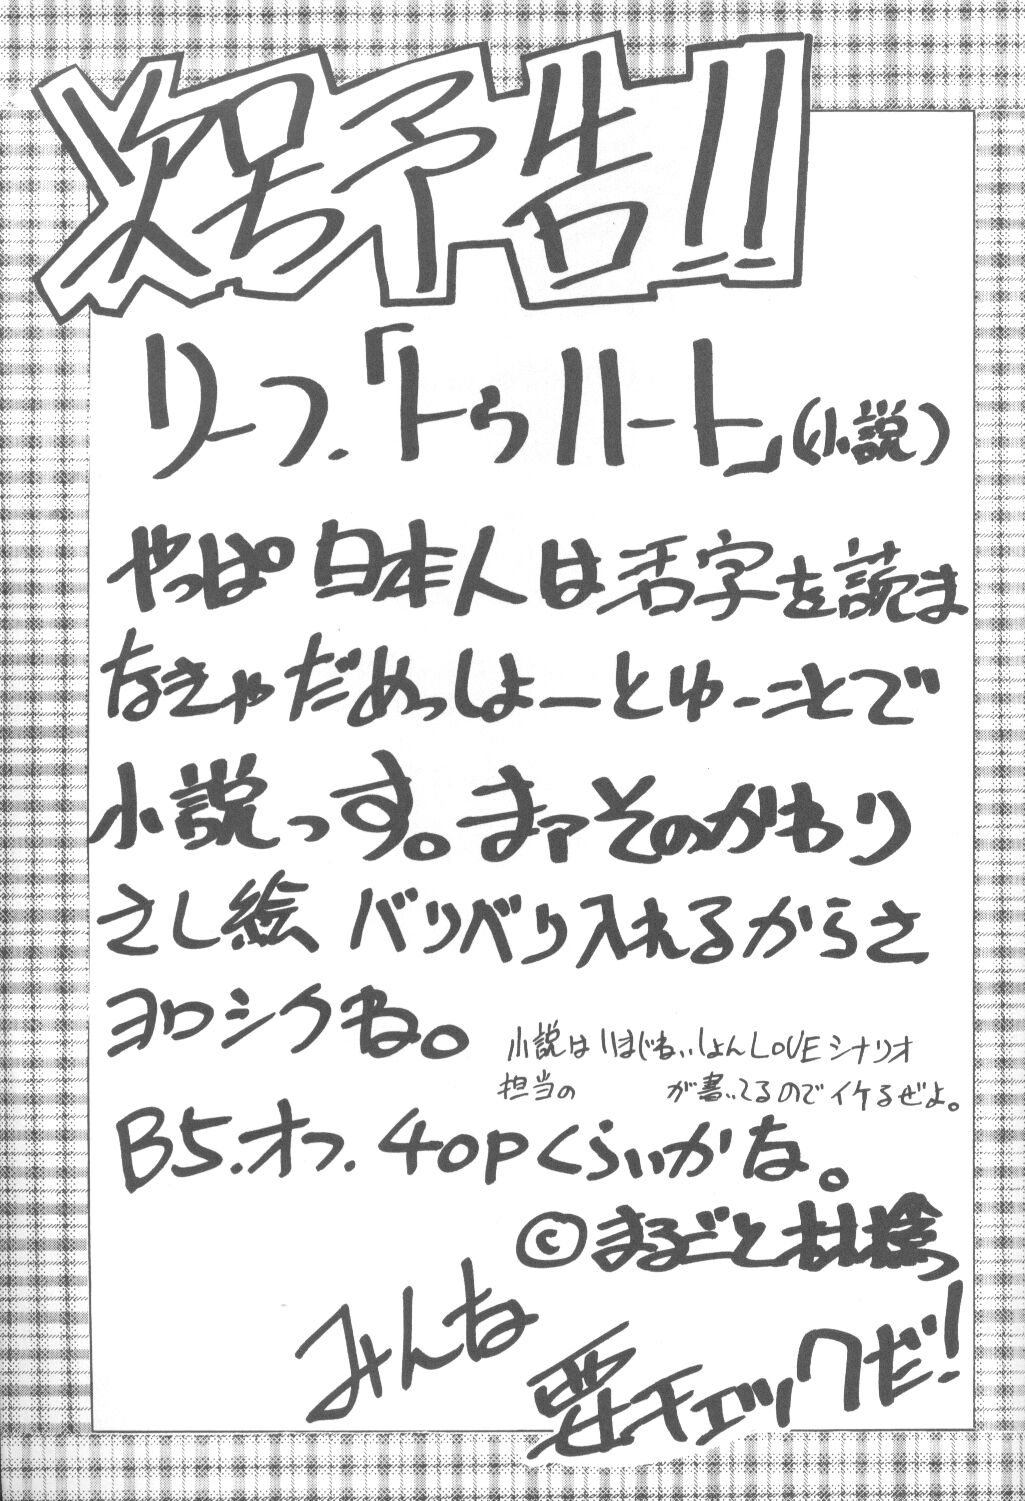 次号予告!!
リーフ.「トゥハート」(小説)
やっぱ日本人は活字を読ま
なきゃだめっしょーとゆーことで
小説っす。まァそのかわり
さし絵 バリバリ入れるからさ
ヨロシクね。
小説はいまじねいしょんLOVEシナリオ
担当の が書いてるのでイケるぜよ。
B5.オフ.40Pくらいかな。
©まるごと
みんな
要チェックだ!